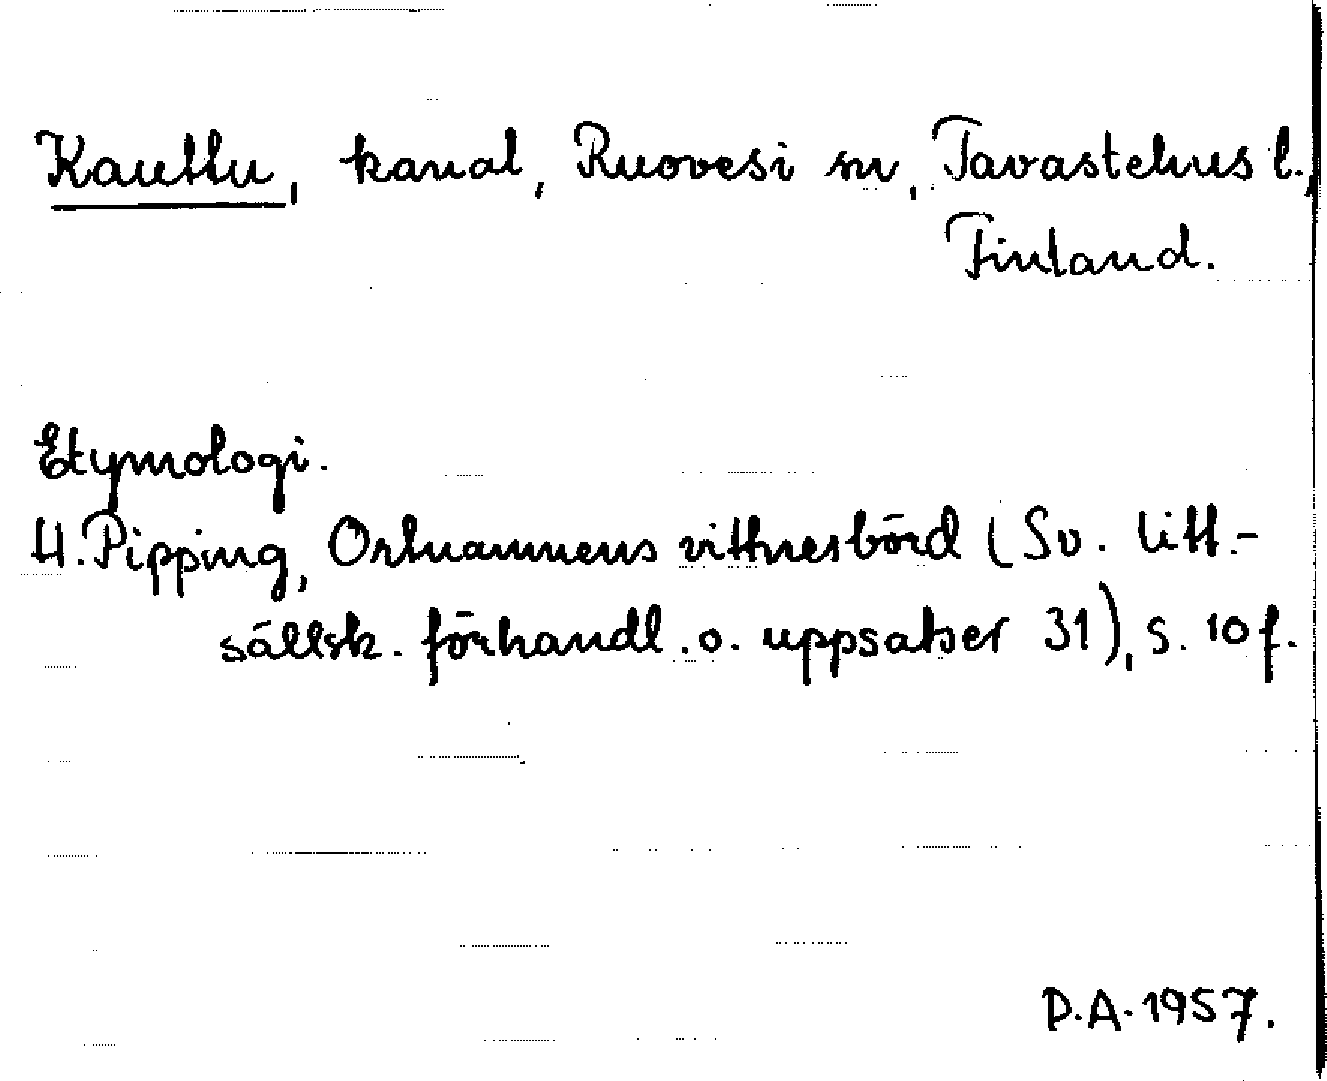 Kauttu, kanal, Ruovesi sn, Tavastehus l.,
Finland.
Etymologi.
H. Pipping, Ortnamnens vittnesbörd (Sv. litt.-
sällsk. förhandl. o. uppsatser 31), s. 10 f.
P.A. 1957.